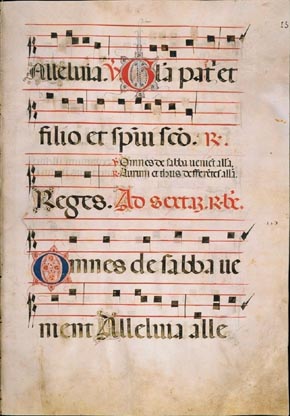 Alleluia. ℣. Gl̃ia pat̃ et
filio et sp̃ui sc̃o. ℟.
℣. Omnes de sabba venient alla.
℟. Aurum et thus defferẽtes alla.
Reges. Ad sextaꝫ. R. br̃e.
Omnes de sabba ve
ment Alleluia alle